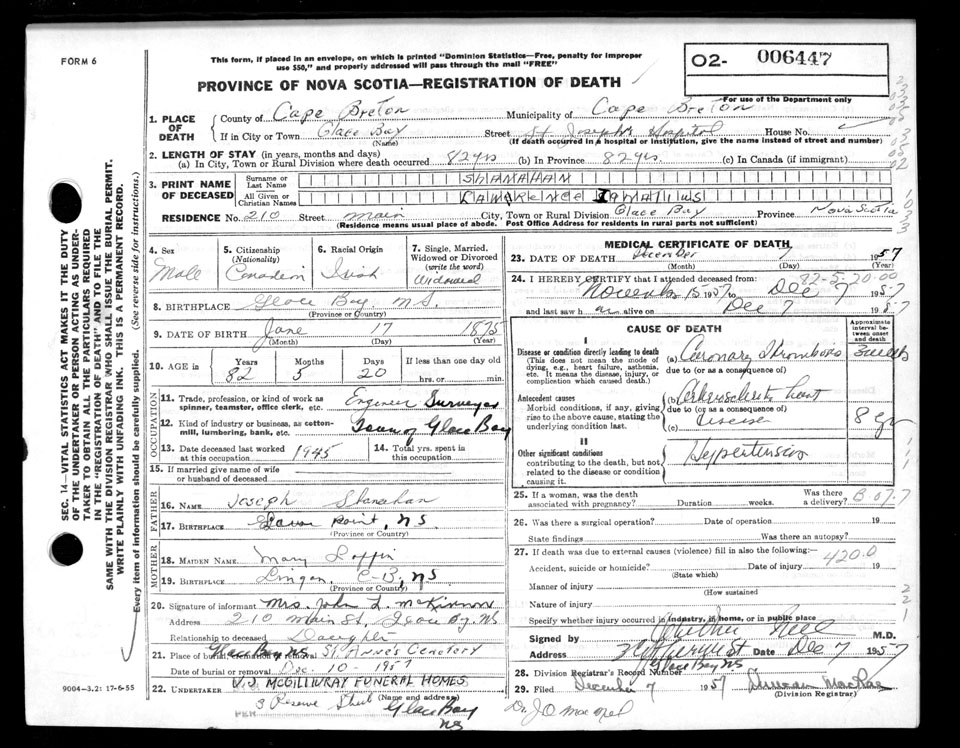 FORM 6
This form, if placed in an envelope, on which is printed "Dominion Statistics—Free, penalty for improper
use $50," and properly addressed will pass through the mail "FREE"
02- 006447
PROVINCE OF NOVA SCOTIA—REGISTRATION OF DEATH
For use of the Department only
1. PLACE OF DEATH
County of Cape Breton Municipality of Cape Breton
If in City or Town Glace Bay Street St Joseph's Hospital House No.
(Name) (If death occurred in a hospital or institution, give the name instead of street and number)
2. LENGTH OF STAY (in years, months and days)
(a) In City, Town or Rural Division where death occurred 82yrs (b) In Province 82yrs. (c) In Canada (if immigrant)
3. PRINT NAME OF DECEASED
Surname or Last Name SHANAHAN
All Given or Christian Names
RESIDENCE No. 210 Street main City, Town or Rural Division Glace Bay Province Nova Scotia
(Residence means usual place of abode. Post Office Address for residents in rural parts not sufficient)
4. Sex Male
5. Citizenship (Nationality) Canadian
6. Racial Origin Irish
7. Single, Married, Widowed or Divorced (write the word) Widowed
8. BIRTHPLACE Glace Bay, N.S.
(Province or Country)
9. DATE OF BIRTH 17 1875
(Month) (Day) (Year)
10. AGE in Years 82 Months 5 Days 20 If less than one day old hrs. or min.
OCCUPATION
11. Trade, profession, or kind of work as spinner, teamster, office clerk, etc. Engineer Surveyor
12. Kind of industry or business, as cotton-mill, lumbering, bank, etc. Town of Glace Bay
13. Date deceased last worked at this occupation 1945
14. Total yrs. spent in this occupation.
15. If married give name of wife or husband of deceased
FATHER
16. NAME Joseph Shanahan
17. BIRTHPLACE Point, NS
(Province or Country)
MOTHER
18. MAIDEN NAME. Mary
19. BIRTHPLACE Lingan, C-B, NS
(Province or Country)
20. Signature of informant Mrs. John L. McKinnon
Address 210 Main St, Glace Bay, NS
Relationship to deceased Daughter
21. Place of burial, cremation or removal Glace Bay NS St. Anne's Cemetery
Date of burial or removal Dec. 10 - 1957
22. UNDERTAKER V.J. McGILLIVRAY FUNERAL HOMES
(Name and address)
PER 3 Reserve Street Glace Bay
NS
MEDICAL CERTIFICATE OF DEATH
23. DATE OF DEATH December 7 1957
(Month) (Day) (Year)
82-5-20.00
24. I HEREBY CERTIFY that I attended deceased from:
1957 to Dec 7 1957
and last saw h alive on Dec 7 1957
CAUSE OF DEATH
Approximate interval between onset and death
I
Disease or condition directly leading to death
(This does not mean the mode of dying, e.g., heart failure, asthenia, etc. It means the disease, injury, or complication which caused death.)
(a) Coronary Thrombosis 3 weeks
due to (or as a consequence of)
Antecedent causes
Morbid conditions, if any, giving rise to the above cause, stating the underlying condition last.
(b) Arteriosclerotic heart
due to (or as a consequence of)
(c) disease 8 yr
II
Other significant conditions
contributing to the death, but not related to the disease or condition causing it.
Hypertension
25. If a woman, was the death associated with pregnancy? Duration weeks. Was there a delivery?
26. Was there a surgical operation? Date of operation 19
State findings Was there an autopsy?
27. If death was due to external causes (violence) fill in also the following:
420.0
Accident, suicide or homicide? Date of injury 19
(State which)
Manner of injury
(How sustained)
Nature of injury
Specify whether injury occurred in industry, in home, or in public place
Signed by M.D.
Address Date Dec 7 1957
Glace Bay NS
28. Division Registrar's Record Number
29. Filed December 7 1957 Duncan MacRae
(Division Registrar)
SEC. 14—VITAL STATISTICS ACT MAKES IT THE DUTY
OF THE UNDERTAKER OR PERSON ACTING AS UNDER-
TAKER TO OBTAIN ALL THE PARTICULARS REQUIRED
IN THE "REGISTRATION OF DEATH" AND TO FILE THE
SAME WITH THE DIVISION REGISTRAR WHO SHALL ISSUE THE BURIAL PERMIT.
WRITE PLAINLY WITH UNFADING INK. THIS IS A PERMANENT RECORD.
Every item of information should be carefully supplied. (See reverse side for instructions.)
9004—3.21: 17-6-55